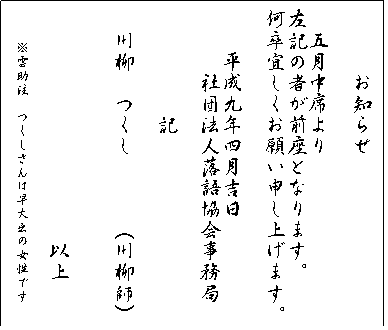 お知らせ
五月中席より
左記の者が前座となります。
何卒宜しくお願い申し上げます。
平成九年四月吉日
社団法人落語協会事務局
記
川柳 つくし (川柳師)
以上
※雲助注 つくしさんは早大出の女性です